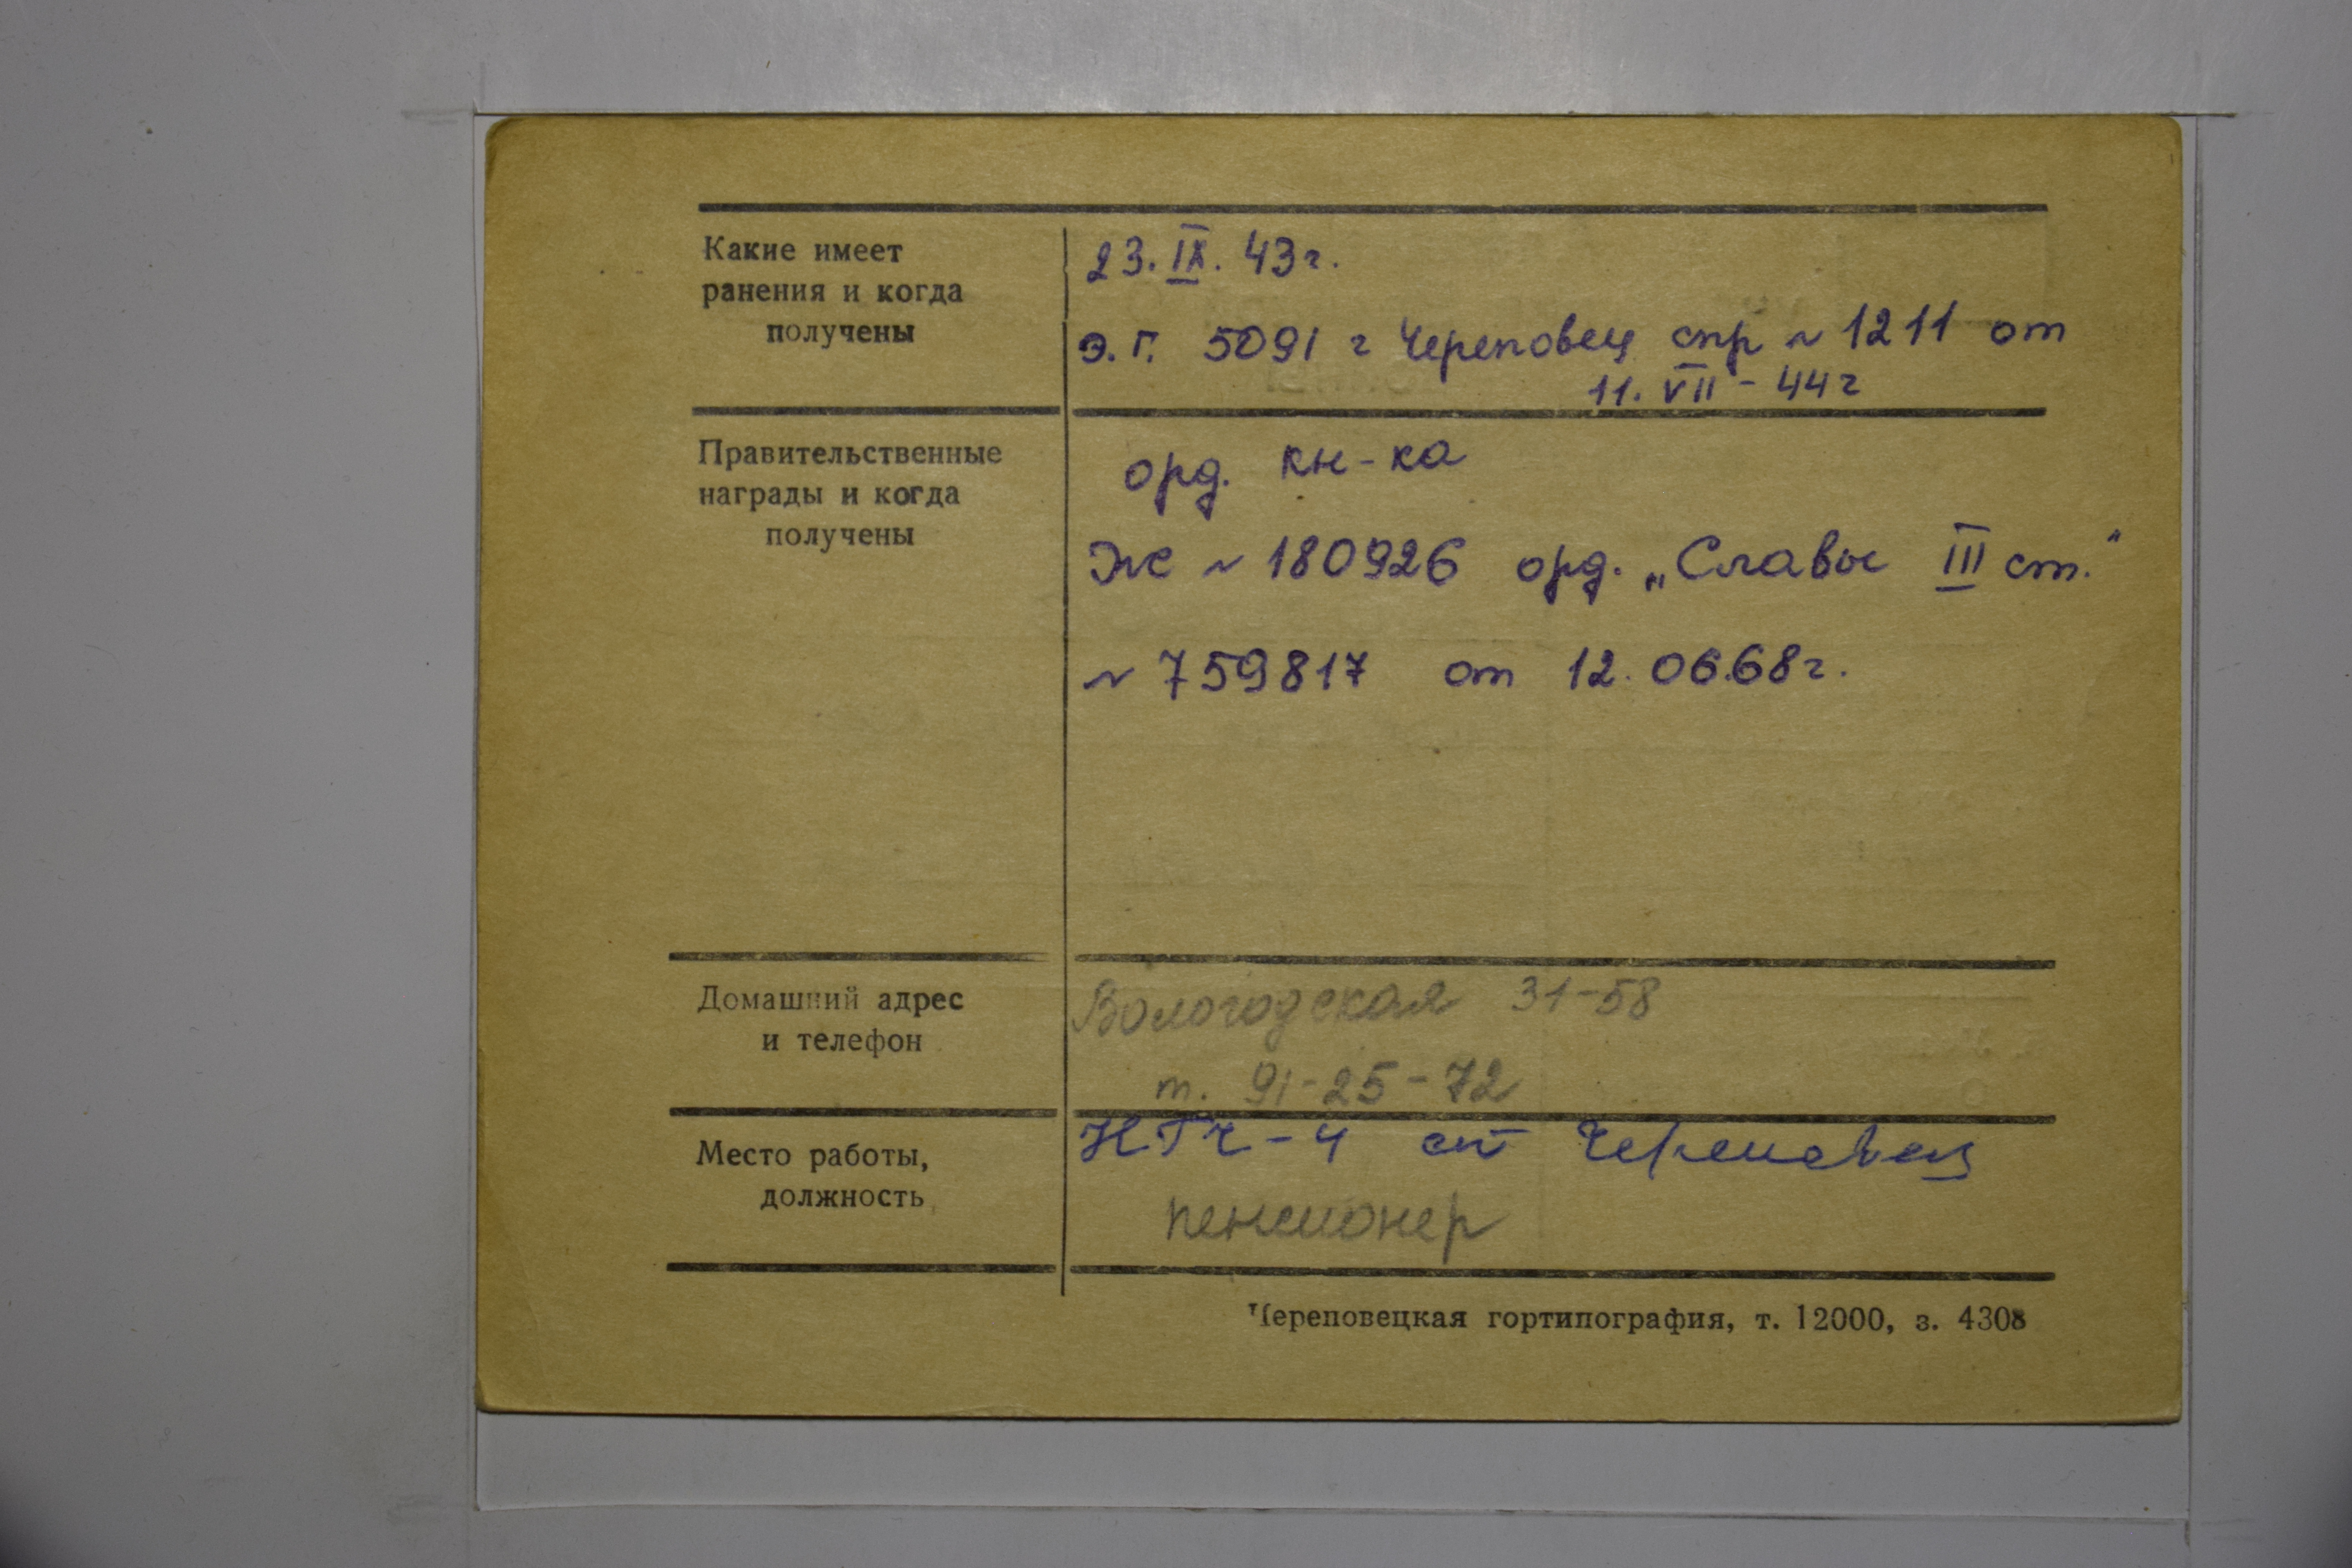 Какие имеет
ранения и когда
получены
23. IX. 43г.
э. г. 5091 г Череповец спр № 1211 от
11. VII - 44г
Правительственные
награды и когда
получены
орд. кн-ка
Ж № 180926 орд. „Славы III ст."
№ 759817 от 12.06.68г.
Домашний адрес
и телефон
Вологодская 31-58
т. 91-25-72
Место работы,
должность
НГЧ-4 ст Череповец
пенсионер
Череповецкая гортипография, т. 12000, з. 4308